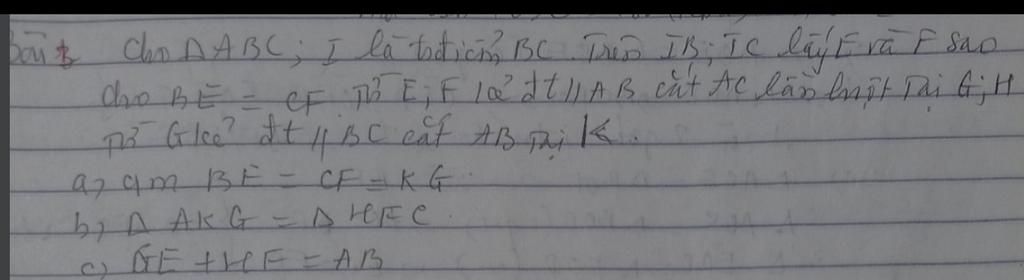 Bài Cho Δ ABC; I là tđiểm BC. Trên IB; IC lấy E và F sao
cho BE = CF Từ E; F kẻ đt // AB cắt AC lần lượt Tại G; H
Từ G kẻ đt // BC cắt AB Tại K.
a, Cm BE = CF = KG.
b, Δ AKG = Δ HFC.
c, GE + HF = AB